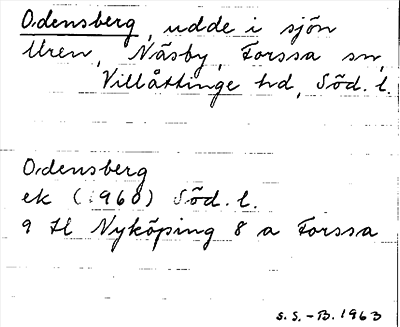 Odensberg, udde i sjön
Uren, Näsby, Forssa sn,
Villåttinge hd, Söd. l.
Odensberg
ek (1960) Söd. l.
9 H Nyköping 8 a Forssa
S.S.-B. 1963